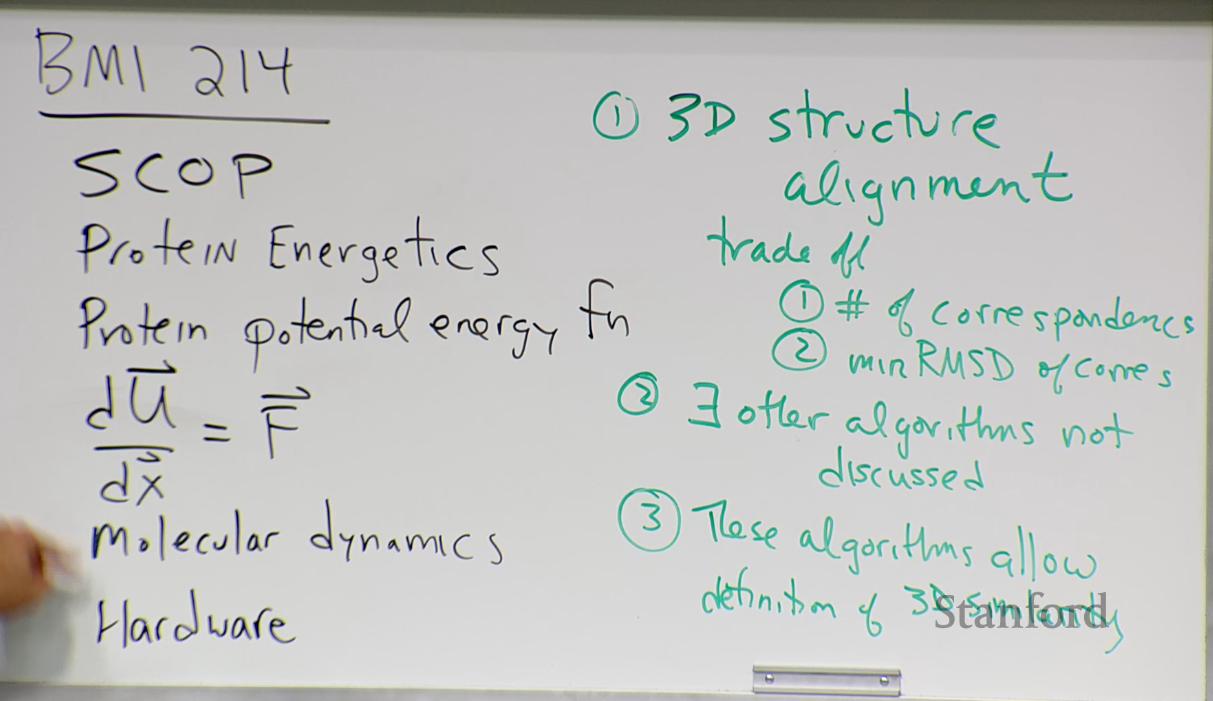 BMI 214
SCOP
Protein Energetics
Protein potential energy fn
dU⃗
dx⃗
= F⃗
Molecular dynamics
Hardware
① 3D structure
alignment
trade off
① # of correspondences
② min RMSD of corres
② ∃ other algorithms not
discussed
③ These algorithms allow
definition of 3D similarity
Stanford